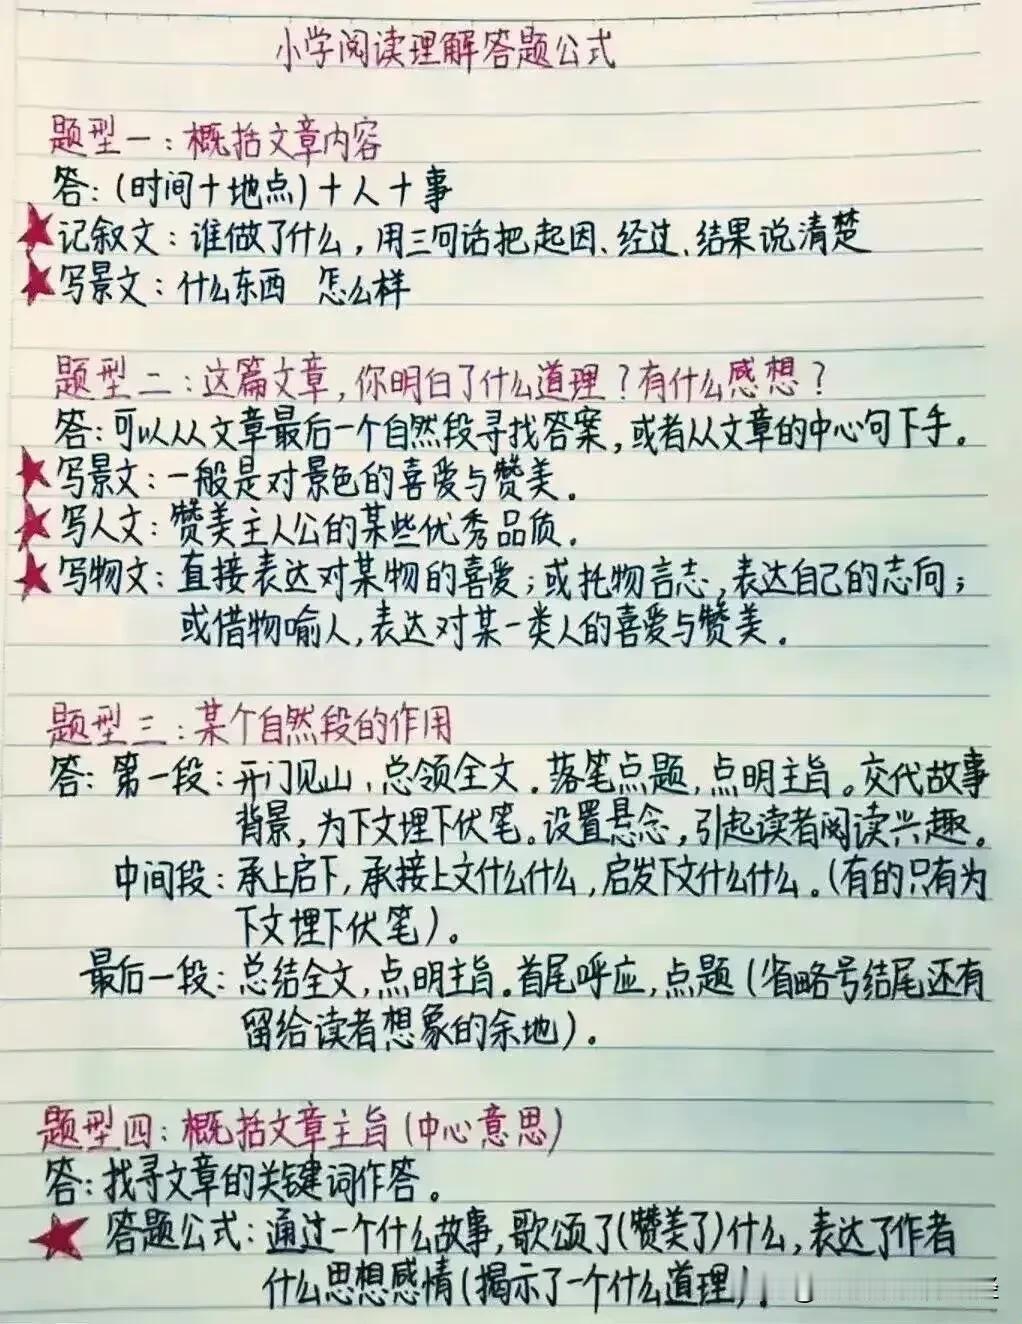 小学阅读理解答题公式
题型一：概括文章内容
答：(时间+地点)+人+事
记叙文：谁做了什么，用三句话把起因、经过、结果说清楚
写景文：什么东西 怎么样
题型二：这篇文章，你明白了什么道理？有什么感想？
答：可以从文章最后一个自然段寻找答案，或者从文章的中心句下手。
写景文：一般是对景色的喜爱与赞美。
写人文：赞美主人公的某些优秀品质。
写物文：直接表达对某物的喜爱；或托物言志，表达自己的志向；
或借物喻人，表达对某一类人的喜爱与赞美。
题型三：某个自然段的作用
答：第一段：开门见山，总领全文。落笔点题，点明主旨。交代故事
背景，为下文埋下伏笔。设置悬念，引起读者阅读兴趣。
中间段：承上启下，承接上文什么什么，启发下文什么什么。(有的只有为
下文埋下伏笔)。
最后一段：总结全文，点明主旨。首尾呼应，点题(省略号结尾还有
留给读者想象的余地)。
题型四：概括文章主旨(中心意思)
答：找寻文章的关键词作答。
答题公式：通过一个什么故事，歌颂了(赞美了)什么，表达了作者
什么思想感情(揭示了一个什么道理)。